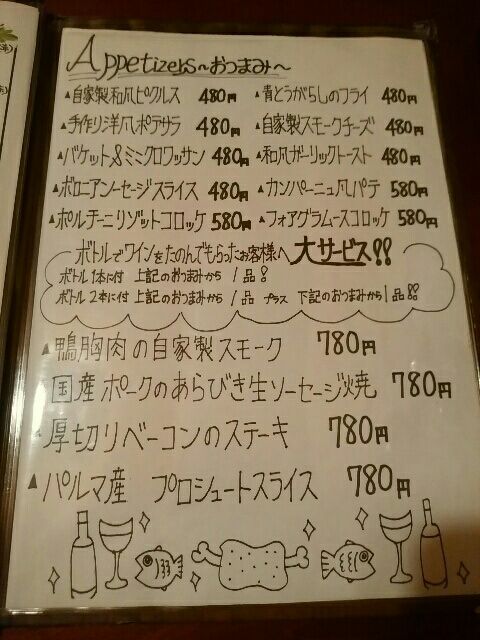 Appetizers~おつまみ~
▲自家製和風ピクルス 480円 ▲青とうがらしのフライ 480円
▲手作り洋風ポテサラ 480円 ▲自家製スモークチーズ 480円
▲バケット&ミニクロワッサン 480円 ▲和風ガーリックトースト 480円
▲ボロニアソーセージスライス 480円 ▲カンパーニュ風パテ 580円
▲ポルチーニリゾットコロッケ 580円 ▲フォアグラムースコロッケ 580円
ボトルでワインをたのんでもらったお客様へ 大サービス!!
ボトル1本に付 上記のおつまみから 1品!!
ボトル2本に付 上記のおつまみから 1品 プラス 下記のおつまみから1品!!
▲鴨胸肉の自家製スモーク 780円
▲国産ポークのあらびき生ソーセージ焼 780円
▲厚切りベーコンのステーキ 780円
▲パルマ産 プロシュートスライス 780円